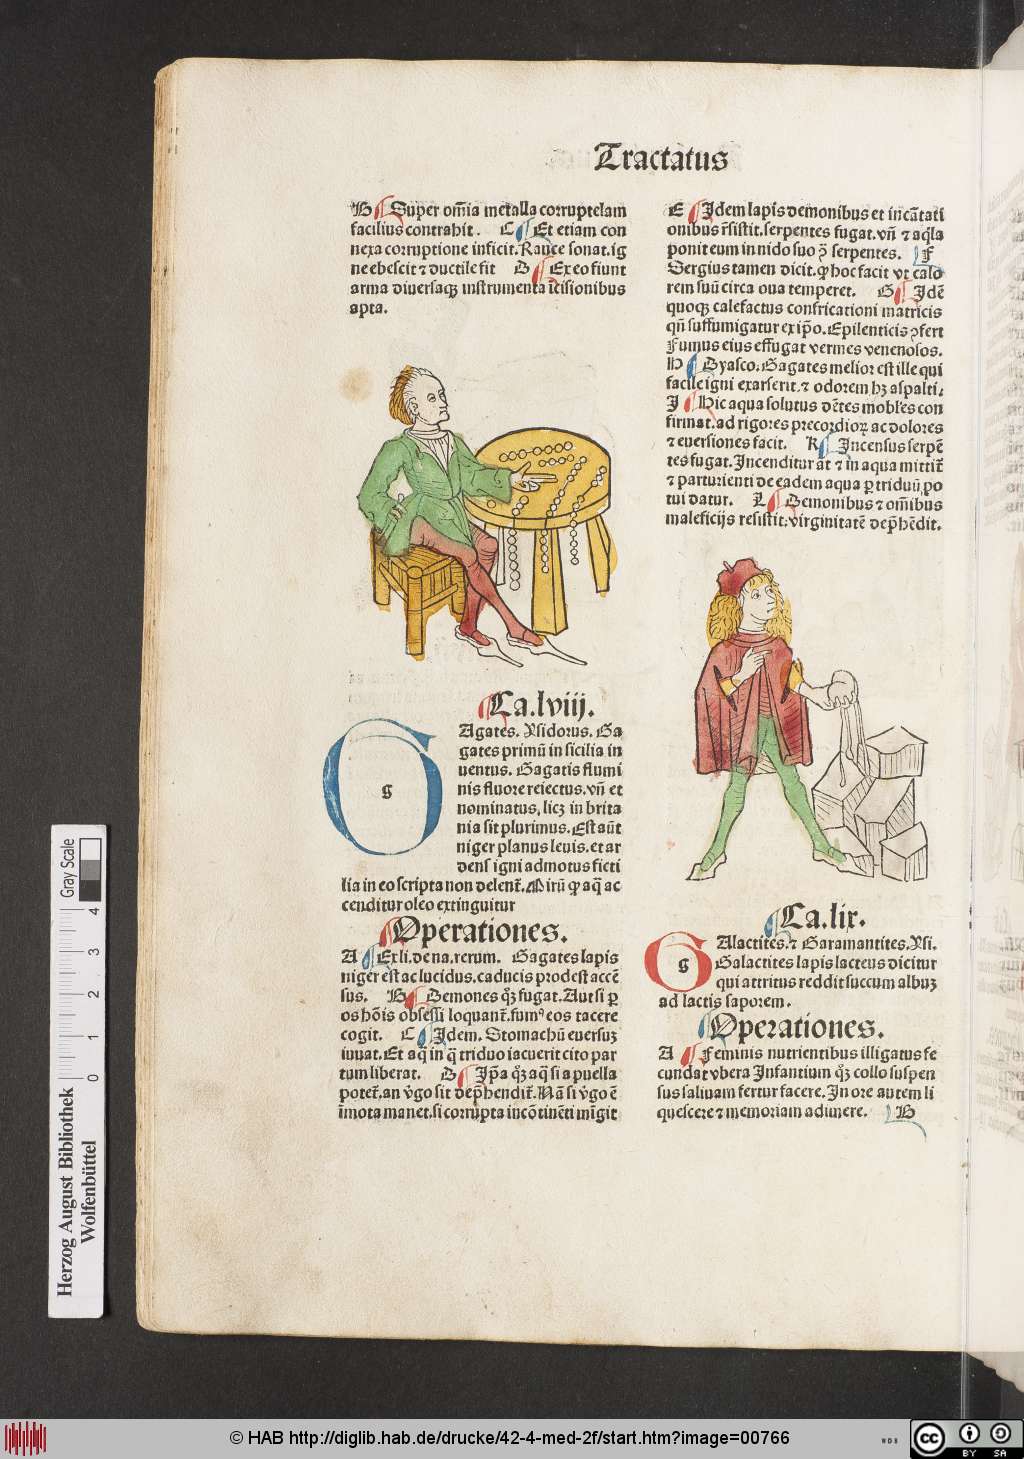 Tractatus
B Super om̄ia metalla corruptelam
facilius contrahit. C Et etiam con
nexa corruptione inficit. Rauce sonat. ig
ne ebescit ⁊ ductile fit D Ex eo fiunt
arma diuersaqꝫ instrumenta īcisionibus
apta.
Ca. lviij.
g
Agates. Ysidorus. Ga
gates primū in sicilia in
uentus. Gagatis flumi
nis fluore reiectus. vn̄ et
nominatus, licꝫ in brita
nia sit plurimus. Est aūt
niger planus leuis. et ar
dens igni admotus ficti
lia in eo scripta non delent̄. Mirū ꝙ aq̄ ac
cenditur oleo extinguitur
Operationes.
A Ex li. de na. rerum. Gagates lapis
niger est ac lucidus. caducis prodest accē
sus. B Demones qꝫ fugat. Aut si ꝑ
os hōis obsessi loquant̄. fumꝰ eos tacere
cogit. C Idem. Stomachū euersuꝫ
iuuat. Et aq̄ in q̄ triduo iacuerit cito par
tum liberat. D Ip̄a qꝫ aq̄ si a puella
potet̄. an v̄go sit dep̄hendit̄. Nā si v̄go ē
īmota manet. si corrupta incōtinēti mīgit
E Idem lapis demonibus et incātati
onibus r̄sistit. serpentes fugat. vn̄ ⁊ aq̄la
ponit eum in nido suo ꝯ̄ serpentes. F
Sergius tamen dicit. ꝙ hoc facit vt calo
rem suū circa oua temperet. G Idē
quoqꝫ calefactus confricationi matricis
qn̄ suffumigatur ex ip̄o. Epilenticis ꝯfert
Fumus eius effugat vermes venenosos.
H Dyasco. Gagates melior est ille qui
facile igni exarserit. ⁊ odorem hꝫ aspalti.
I Hic aqua solutus dētes mobl̄es con
firmat. ad rigores precordioꝝ ac dolores
⁊ euersiones facit. K Incensus serpē
tes fugat. Incenditur at ⁊ in aqua mittit̄
⁊ parturienti de eadem aqua ꝑ triduū po
tui datur. L Demonibus ⁊ om̄ibus
maleficijs resistit: virginitatē dep̄hēdit.
Ca. lix.
g
Alactites. ⁊ Garamantites. Ysi.
Galactites lapis lacteus dicitur
qui attritus reddit succum albuꝫ
ad lactis saporem.
Operationes.
A Feminis nutrientibus illigatus fe
cundat vbera Infantium qꝫ collo suspen
sus saliuam fertur facere. In ore autem li
quescere ⁊ memoriam adimere. B
Herzog August Bibliothek
Wolfenbüttel
Gray Scale
0 1 2 3 4
© HAB http://diglib.hab.de/drucke/42-4-med-2f/start.htm?image=00766
WDB
cc BY SA